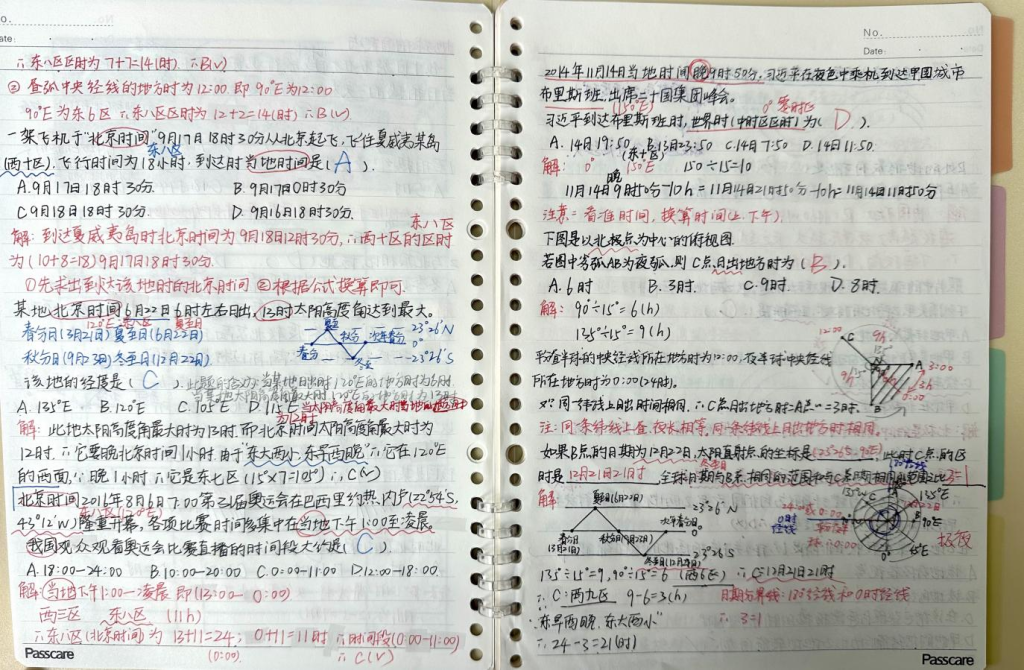 ∴东八区区时为 7+7=14(时) ∴B(√)
② 昼弧中央经线的地方时为12:00 即 90°E为12:00
90°E为东6区 ∴东八区区时为 12+2=14(时) ∴B(√)
一架飞机于"北京时间"9月17日18时30分从北京起飞,飞往夏威夷某岛
东八区
(西十区),飞行时间为18小时,到达时当地时间是( A ).
A.9月17日18时30分. B. 9月17日0时30分
C.9月18日18时30分. D. 9月16日18时30分.
东八区
解: 到达夏威夷岛时北京时间为9月18日12时30分, ∴西十区的区时
为(10+8=18)9月17日18时30分.
①先求出到达该地时的北京时间 ②根据公式换算即可.
某地北京时间6月22日6时左右日出, 13时太阳高度角达到最大。
120°E 东八区 夏至日
春分日(3月21日)夏至日(6月22日)
秋分日(9月23日)冬至日(12月22日)
夏至 23°26′N
春分 秋分 次年春分 0°
冬至 23°26′S
该地的经度是( C ).
A. 135°E B.120°E C.105°E D.115°E
解: 此地太阳高度角最大时为13时.即北京时间太阳高度角最大时为
12时. ∴它要晚北京时间1小时.由于"东大西小,东早西晚" ∴它在120°E
的西面, ∵晚1小时 ∴它是东七区(15°×7=105°) ∴C(√)
北京时间2016年8月6日7:00第31届奥运会在巴西里约热内卢(22°54′S,
东八区(120°E)
43°12′W)隆重开幕,各项比赛时间多集中在当地下午1:00至凌晨
我国观众观看奥运会比赛直播的时间段大约是( C ).
A.18:00-24:00 B.10:00-20:00 C.0:00-11:00 D.12:00-18:00.
解: 当地下午1:00-凌晨 即(13:00- 0:00)
西三区 东八区 (11h)
∴东八区(北京时间)为 13+11=24; 0+11=11时 ∴时间段(0:00-11:00)
(0:00) ∴C(√)
Passcare
No.
Date:
2014年11月14日当地时间晚9时50分,习近平在夜色中乘机到达甲国城市
布里斯班,出席二十国集团峰会。
(150°E) 0° 零时区
习近平到达布里斯班时,世界时(中时区区时)为( D ).
A. 14日19:50 B.13日23:50 C.14日7:50 D.14日11:50.
(东十区)
解: 0° 150°E 150÷15=10
晚
11月14日9时50分-10h=11月14日21时50分-10h=11月14日11时50分
注意: 看准时间, 换算时间(上.下午)
下图是以北极点为中心的俯视图.
若图中劣弧AB为夜弧.则C点日出地方时为( B ).
A.6时 B.3时. C.9时. D.8时.
解: 90°÷15°=6(h)
135°÷15°=9(h)
平分昼半球的中央经线所在地方时为12:00.夜半球中央经线
所在地方时为0:00(24时).
又∵同一纬线上日出时间相同. ∴C点日出地方时=A点=3时.
注:同一条纬线上昼.夜长相等,同一条纬线上日出地方时相同。
如果B点的日期为12月22日,太阳直射点的坐标是(23°26′S, 90°E) . 此时C点的区
冬至日
时是 12月21日21时. 全球日期与B点相同的范围和与C点的相同的范围之比 3=1
解:
夏至日(6月22日) 23°26′N
春分日 3月21日 秋分日(9月23日) 次年春分日 0°
冬至日(12月22日) 23°26′S
135°E
90°E
45°E
极夜
135°÷15°=9, 90°÷15°=6 (西6E) ∴C:12月21日21时
∴ C:西九区 9-6=3(h) 日期分界线:180°经线和0时经线
"东早西晚,东大西小" ∴ 3=1
∴24-3=21(时)
Passcare